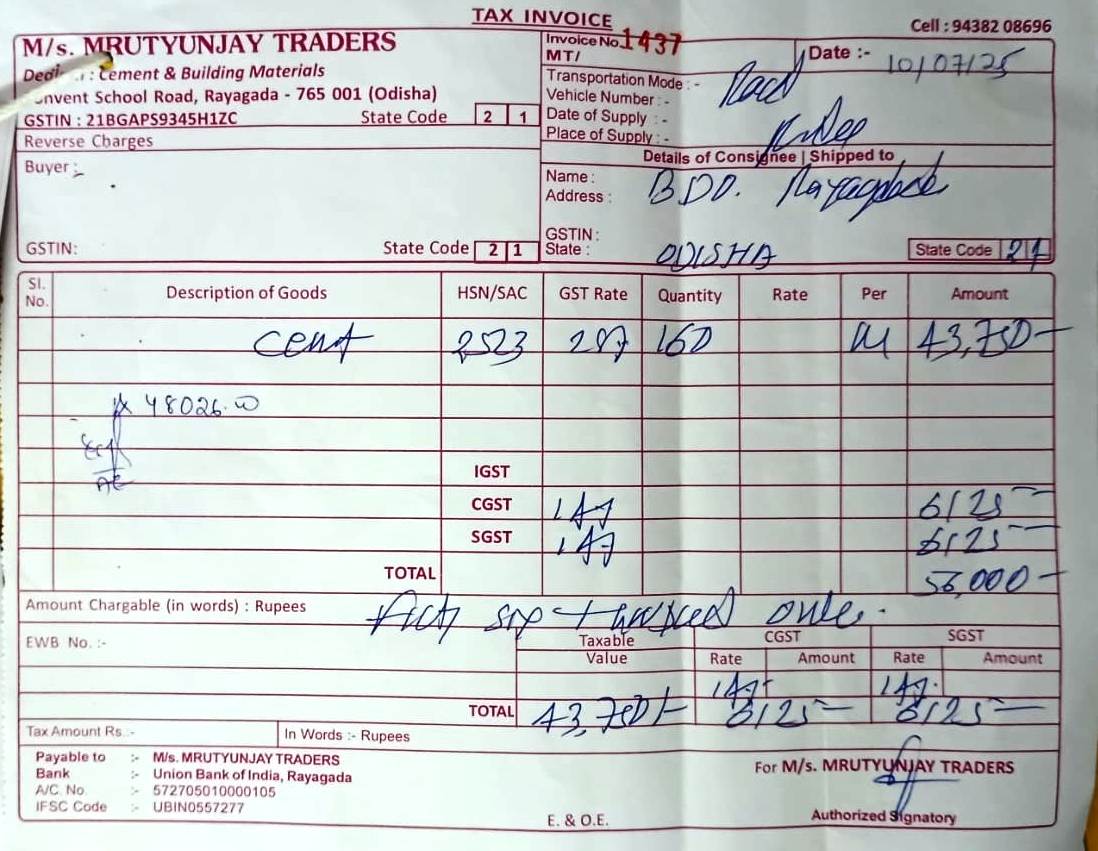 TAX INVOICE
Cell : 94382 08696
M/s. MRUTYUNJAY TRADERS
Cement & Building Materials
Convent School Road, Rayagada - 765 001 (Odisha)
GSTIN : 21BGAPS9345H1ZC State Code 2 1
Reverse Charges
Buyer :
GSTIN: State Code 2 1
Invoice No. 1437
MT/
Date :- 10/07/25
Transportation Mode :- Road
Vehicle Number :-
Date of Supply :-
Place of Supply :-
Details of Consignee | Shipped to
Name : BDO. Rayagada
Address :
GSTIN :
State : ODISHA State Code 21
Sl. No. Description of Goods HSN/SAC GST Rate Quantity Rate Per Amount
2523 28% 160 43,750-
48026.00
AE
IGST
CGST 14% 6125-
SGST 14% 6125-
TOTAL 56,000-
Amount Chargable (in words) : Rupees Fifty six thousand only.
EWB No. :-
Taxable Value CGST SGST
Rate Amount Rate Amount
14% 14%
TOTAL 43,750/- 6125- 6125-
Tax Amount Rs. :- In Words :- Rupees
Payable to :- M/s. MRUTYUNJAY TRADERS
Bank :- Union Bank of India, Rayagada
A/C. No. :- 572705010000105
IFSC Code :- UBIN0557277
For M/s. MRUTYUNJAY TRADERS
E. & O.E.
Authorized Signatory